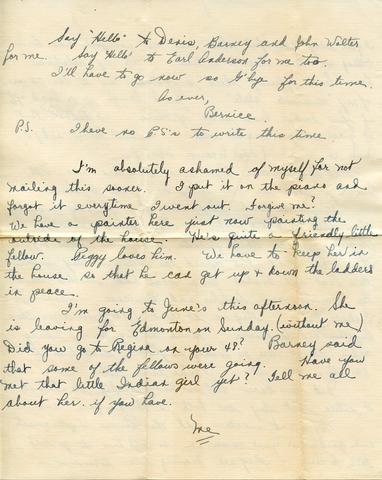 Say "Hello" to Denis, Barney and John Walter
for me. Say 'Hello' to Earl Anderson for me too.
I'll have to go now so G'bye for this time.
As ever,
Bernice.
P.S. I have no P.S.'s to write this time
I'm absolutely ashamed of myself for not
mailing this sooner. I put it on the piano and
forgot it everytime I went out. Forgive me?
We have a painter here just now painting the
outside of the house. He's quite a friendly little
fellow. Piggy loves him. We have to keep her in
the house so that he can get up & down the ladders
in peace.
I'm going to June's this afternoon. She
is leaving for Edmonton on Sunday. (without me)
Did you go to Regina on your 48? Barney said
that some of the fellows were going. Have you
met that little Indian girl yet? Tell me all
about her if you have.
Me